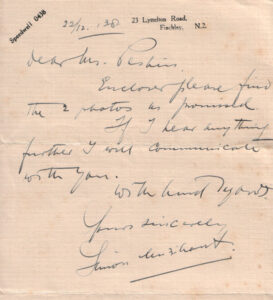 Speedwell 0438
23 Lyndton Road.
Finchley, N.2.
22/12.'38.
Dear Mr. Perkins
Enclosed please find
the 2 photos as promised
If I hear anything
further I will communicate
with you.
With kind regards
Yours sincerely
Simon